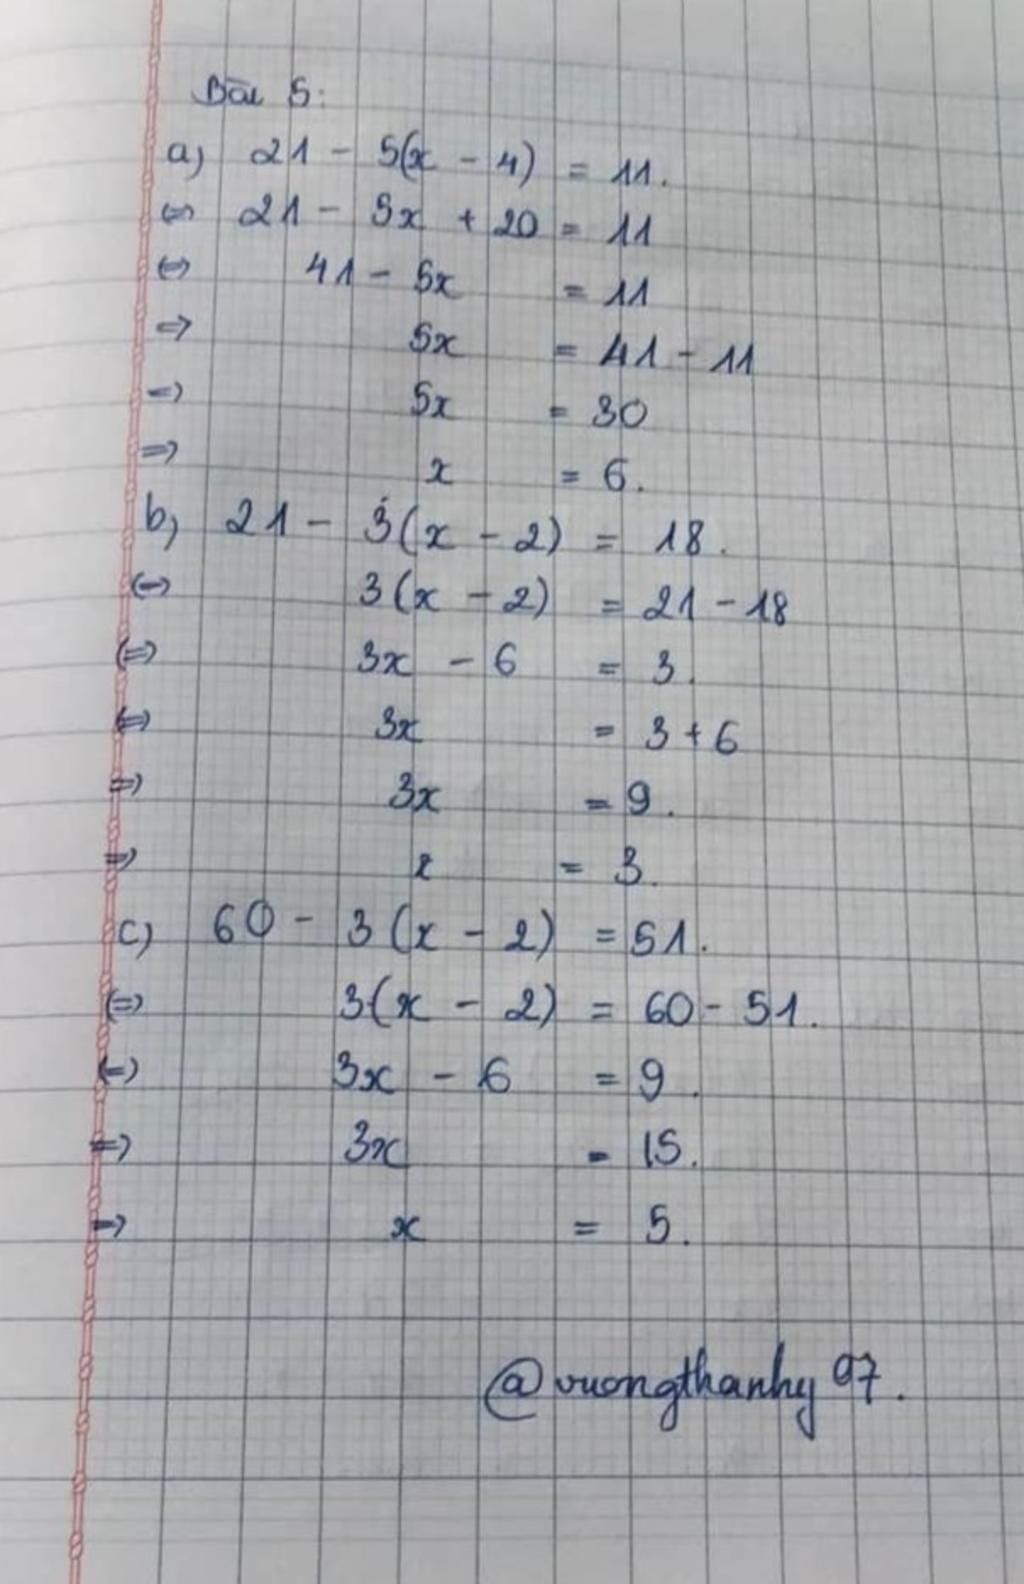 Bài 5:
a) 21 - 5(x - 4) = 11.
<=> 21 - 5x + 20 = 11
<=> 41 - 5x = 11
=> 5x = 41 - 11
=> 5x = 30
=> x = 6.
b) 21 - 3(x - 2) = 18.
<=> 3(x - 2) = 21 - 18
<=> 3x - 6 = 3.
<=> 3x = 3 + 6
=> 3x = 9.
=> x = 3.
c) 60 - 3(x - 2) = 51.
<=> 3(x - 2) = 60 - 51.
<=> 3x - 6 = 9.
=> 3x = 15.
=> x = 5.
@vuongthanhy97.